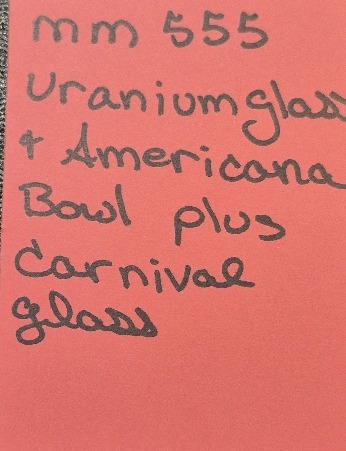 mm 555
Uranium glass
+ Americana
Bowl plus
Carnival
glass